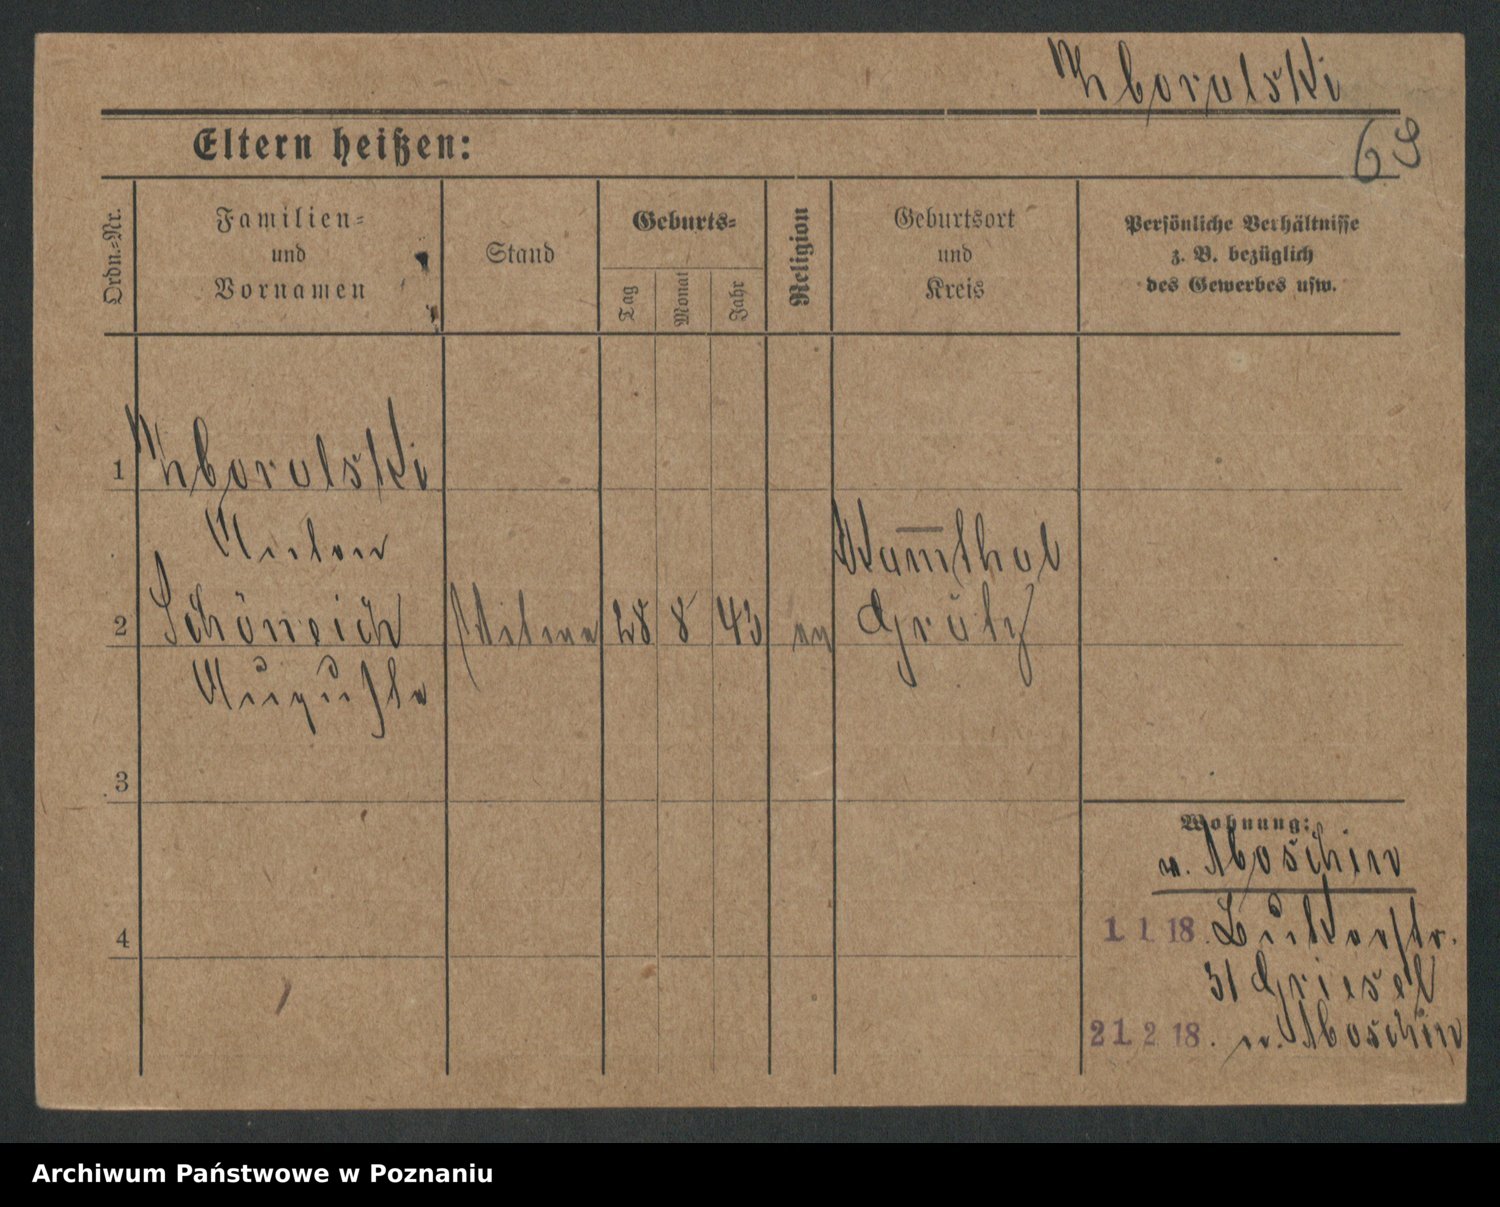 Zboralski
69
Eltern heißen:
Ordn.-Nr.
Familien-
und
Vornamen
Stand
Geburts-
Tag
Monat
Jahr
Religion
Geburtsort
und
Kreis
Persönliche Verhältnisse
z. B. bezüglich
des Gewerbes usw.
1 Zboralski
Anton
2 Schönreich Witwe 28 8 43 ev
Auguste
Grätz
3
4
Wohnung:
n. Moschin
1. 1. 18.
31 Griesel
21. 2. 18. n. Moschin
Archiwum Państwowe w Poznaniu